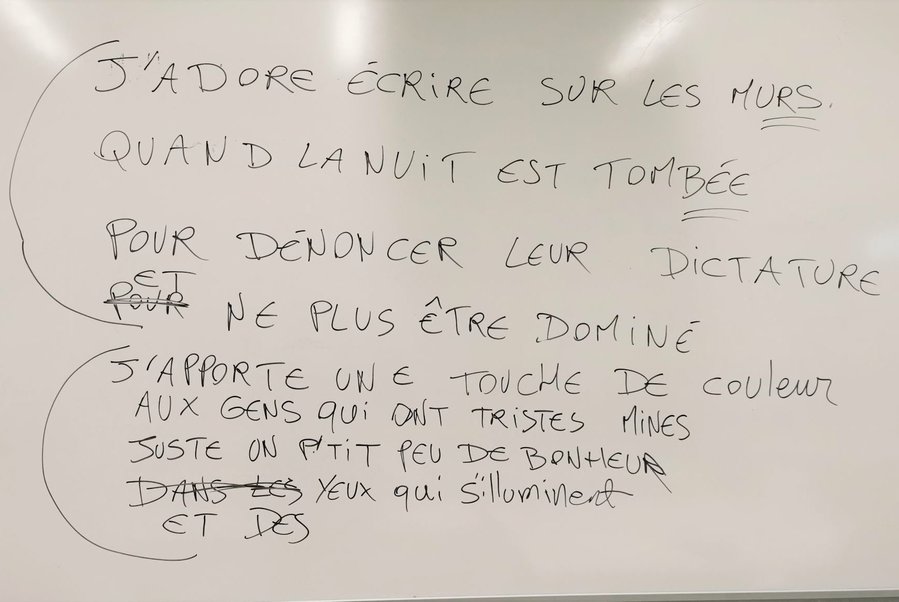 J'ADORE ÉCRIRE SUR LES MURS.
QUAND LA NUIT EST TOMBÉE
POUR DÉNONCER LEUR DICTATURE
ET
POUR NE PLUS ÊTRE DOMINÉ
J'APPORTE UNE TOUCHE DE COULEUR
AUX GENS QUI ONT TRISTES MINES
JUSTE ON P'TIT PEU DE BONHEUR
DANS LES YEUX qui s'illuminent
ET DES